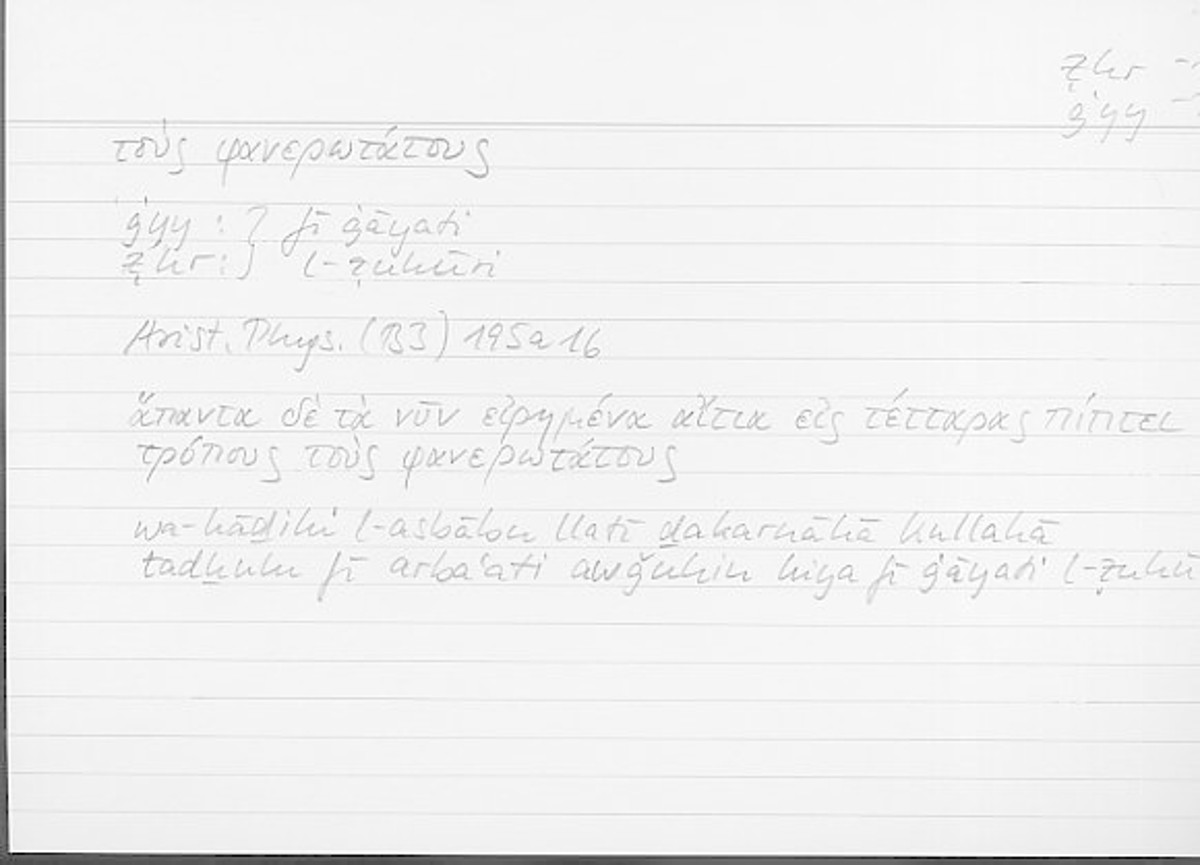 ẓhr
ġyy
τοὺς φανερωτάτους
ġyy : } fī ġāyati
ẓhr : } l-ẓuhūri
Arist. Phys. (B3) 195a16
ἅπαντα δὲ τὰ νῦν εἰρημένα αἴτια εἰς τέτταρας πίπτει
τρόπους τοὺς φανερωτάτους
wa-hāḏihi l-asbābu llatī ḏakarnāhā kullahā
tadḫulu fī arbaʿati awǧuhin hiya fī ġāyati l-ẓuhū